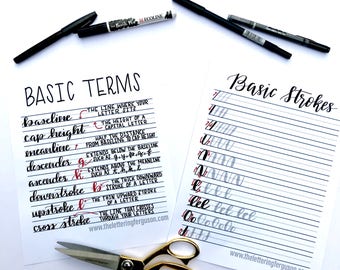 ECOLINE
BASIC TERMS
baseline THE LINE WHERE YOUR
LETTER SITS
cap height THE HEIGHT OF A
CAPITAL LETTER
meanline HALF THE DISTANCE
FROM BASELINE TO CAP HEIGHT
descender EXTENDS BELOW THE BASELINE
SUCH AS g, y, p, q, f
ascender EXTENDS ABOVE THE MEANLINE
downstroke THE THICK DOWNWARD
STROKE OF A LETTER
upstroke THE THIN UPWARD STROKE
OF A LETTER
cross stroke THE LINE THAT CROSSES
THROUGH YOUR LETTERS
www.theletteringferguson.com
Basic Strokes
www.theletteringferguson.com